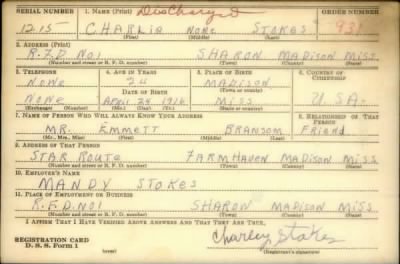 SERIAL NUMBER 1. NAME (Print) Discharged ORDER NUMBER
1215 CHARLIE NONE STOKES 931
(First) (Middle) (Last)
2. ADDRESS (Print)
R.F.D NO1 SHARON MADISON MISS.
(Number and street or R. F. D. number) (Town) (County) (State)
3. TELEPHONE 4. AGE IN YEARS 5. PLACE OF BIRTH 6. COUNTRY OF CITIZENSHIP
NONE 24 MADISON
DATE OF BIRTH (Town or county)
NONE APRIL 24 1916 MISS U.S.A.
(Exchange) (Number) (Mo.) (Day) (Yr.) (State or country)
7. NAME OF PERSON WHO WILL ALWAYS KNOW YOUR ADDRESS 8. RELATIONSHIP OF THAT PERSON
MR. EMMETT BRANSOM FRIEND
(Mr., Mrs., Miss) (First) (Middle) (Last)
9. ADDRESS OF THAT PERSON
STAR ROUTE FARMHAVEN MADISON MISS.
(Number and street or R. F. D. number) (Town) (County) (State)
10. EMPLOYER'S NAME
MANDY STOKES
11. PLACE OF EMPLOYMENT OR BUSINESS
R.F.D. NO1 SHARON MADISON MISS.
(Number and street or R. F. D. number) (Town) (County) (State)
I AFFIRM THAT I HAVE VERIFIED ABOVE ANSWERS AND THAT THEY ARE TRUE.
REGISTRATION CARD
D. S. S. Form 1
Charley Stokes
(Registrant's signature)